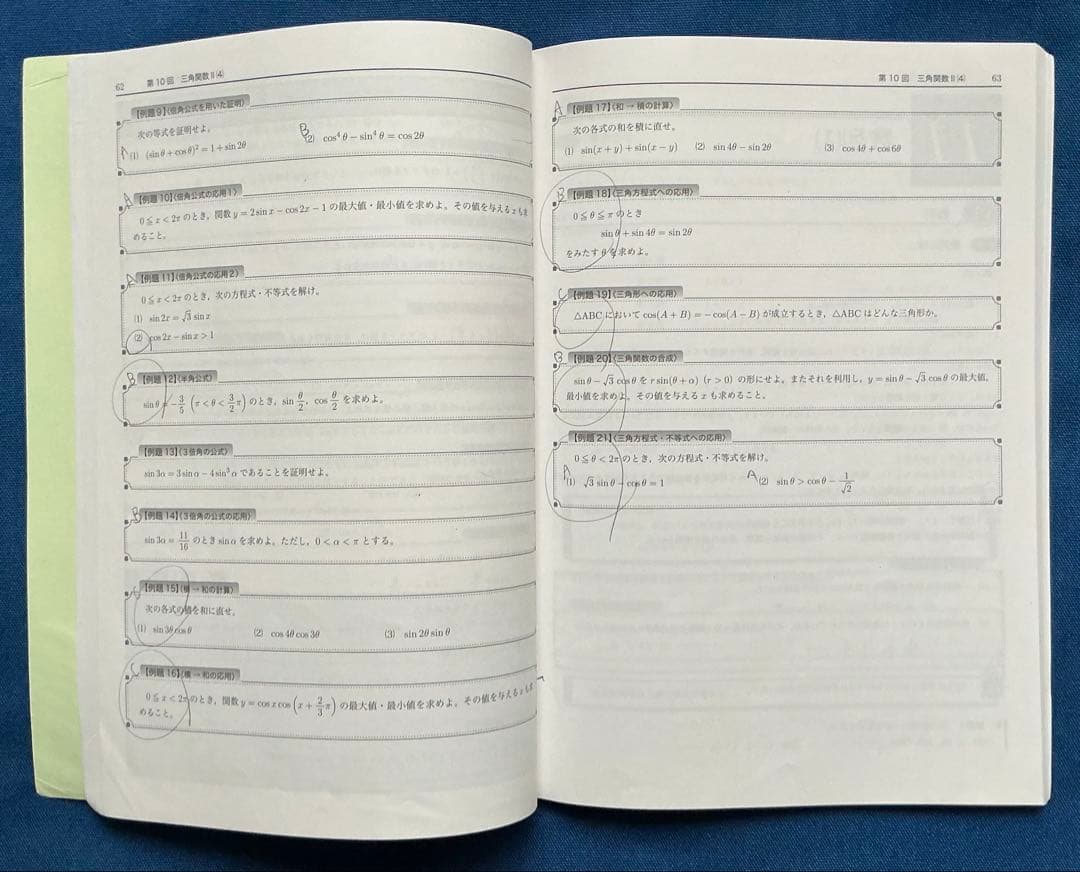 62 第10回 三角関数Ⅱ(4)
【例題9】〈倍角公式を用いた証明〉
次の等式を証明せよ。
A (1) (sinθ+cosθ)²=1+sin2θ B (2) cos⁴θ−sin⁴θ=cos2θ
A 【例題10】〈倍角公式の応用1〉
0≦x<2πのとき，関数y=2sinx−cos2x−1の最大値・最小値を求めよ。その値を与えるxも求
めること。
A 【例題11】〈倍角公式の応用2〉
0≦x<2πのとき，次の方程式・不等式を解け。
(1) sin2x=√3 sinx
(2) cos2x−sinx>1
B 【例題12】〈半角公式〉
sinθ=−3/5 (π<θ<3/2π) のとき，sin θ/2，cos θ/2 を求めよ。
【例題13】〈3倍角の公式〉
sin3α=3sinα−4sin³αであることを証明せよ。
B 【例題14】〈3倍角の公式の応用〉
sin3α=11/16 のときsinαを求めよ。ただし，0<α<πとする。
【例題15】〈積→和の計算〉
次の各式の積を和に直せ。
(1) sin3θcosθ (2) cos4θcos3θ (3) sin2θsinθ
C 【例題16】〈積→和の応用〉
0≦x<2πのとき，関数y=cosxcos(x+2/3π) の最大値・最小値を求めよ。その値を与えるxも求
めること。
第10回 三角関数Ⅱ(4) 63
A 【例題17】〈和→積の計算〉
次の各式の和を積に直せ。
(1) sin(x+y)+sin(x−y) (2) sin4θ−sin2θ (3) cos4θ+cos6θ
B 【例題18】〈三角方程式への応用〉
0≦θ≦πのとき
sinθ+sin4θ=sin2θ
をみたすθを求めよ。
C 【例題19】〈三角形への応用〉
△ABCにおいてcos(A+B)=−cos(A−B)が成立するとき，△ABCはどんな三角形か。
B 【例題20】〈三角関数の合成〉
sinθ−√3cosθをrsin(θ+α) (r>0) の形にせよ。またそれを利用し，y=sinθ−√3cosθの最大値，
最小値を求めよ。その値を与えるxも求めること。
【例題21】〈三角方程式・不等式への応用〉
0≦θ<2πのとき，次の方程式・不等式を解け。
A (1) √3sinθ−cosθ=1 A (2) sinθ>cosθ−1/√2